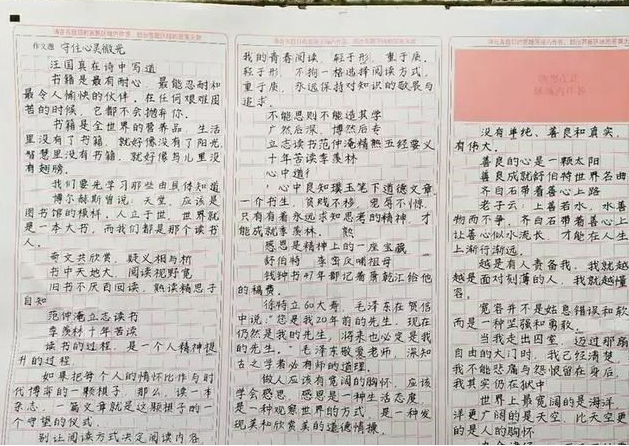 作文题 守住心灵微光
汪国真在诗中写道
书籍是最有耐心 最能忍耐和
最令人愉快的伙伴。在任何艰难困
苦的时候，它都不会抛弃你.
书籍是全世界的营养品，生活
里没有了书籍，就好像没有了阳光，
智慧里没有书籍，就好像鸟儿里没
有翅膀.
我们要先学习那些由具体知道
博尔赫斯曾说：天堂，应该是
图书馆的模样，人立于世，世界就
是一本大书，而我们都是那个读书
人.
奇文共欣赏，疑义相与析
书中天地大，阅读视野宽
旧书不厌百回读，熟读精思子
自知
范仲淹立志读书
李羡秒十年苦读
读书的过程，是一个人精神提
升的过程
如果把每个人的情怀比作与时
代博弈的一颗棋子，那么，读一本
杂志，一篇文章就是这颗棋子的一
个守望的仪式.
别让阅读方式决定阅读内容
我的青春阅读，轻于形，重于质，
轻于形，不拘一格选择阅读方式，
重于质，永远保持对知识的敬畏与
追求.
不能思则不能造其学
广然后深，博然后专
立志读书范仲淹精熟五经要义
十年苦读李羡林
心中道德
心中良知璞玉笔下道德文章，
一个书生，贫贱不移，宠辱不惊，
只有有着永远求知思考的精神，才
能成就季羡林，
感恩是精神上的一座宝藏
舒伯特
钱钟书47年都记着萧乾汇给他
的稿费.
徐特立60大寿，毛泽东在贺信
中说："您是我20年前的先生，现在
仍然是我的先生，将来也必定是我
的先生。" 毛泽东敬爱老师，深知
古之学者必有师的道理.
做人应该有宽阔的胸怀，应该
学会感恩，感恩是一种生活态度，
是一种观察世界的方式，是一种发
现美和欣赏美的道德情操.
没有单纯、善良和真实，
有伟大.
善良的心是一颗太阳
善良成就舒伯特世界名曲
齐白石带着善心上路
老子云：上善若水，水善
物而不争，齐白石带着善心上
让善心似水流长，才能在人生
上渐行渐远.
越是有人责备我，我就越
越是面对刻薄的人，我就越懂
容.
宽容并不是姑息错误和软
而是一种坚强和勇敢.
当我走出囚室，迈过那扇
自由的大门时，我已经清楚
我不能悲痛与怨恨留在身后，
我其实仍在狱中
世界上最宽阔的是海洋
洋更广阔的是天空，比天空更
的是人的胸怀.